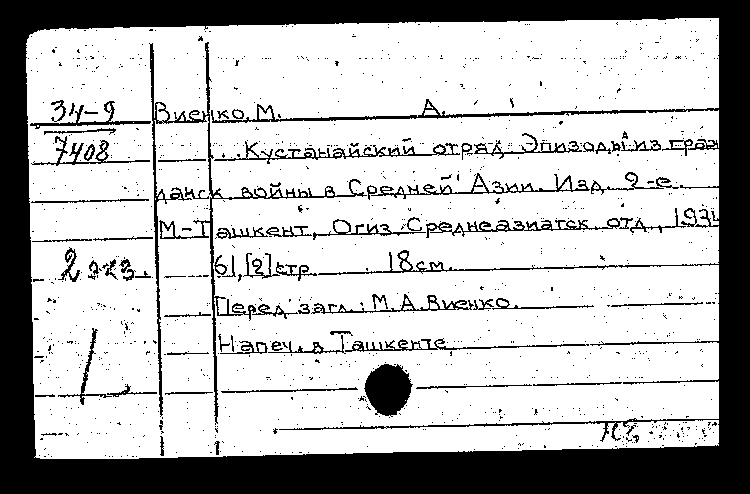 34-9 Виенко, М. А.
7408 ...Кустанайский отряд. Эпизоды из граж
данск. войны в Средней Азии. Изд. 2-е.
М.-Ташкент, Огиз. Среднеазиатск. отд.,
2 экз. 61,[2]стр. 18см.
Перед загл.: М.А.Виенко.
Напеч. в Ташкенте